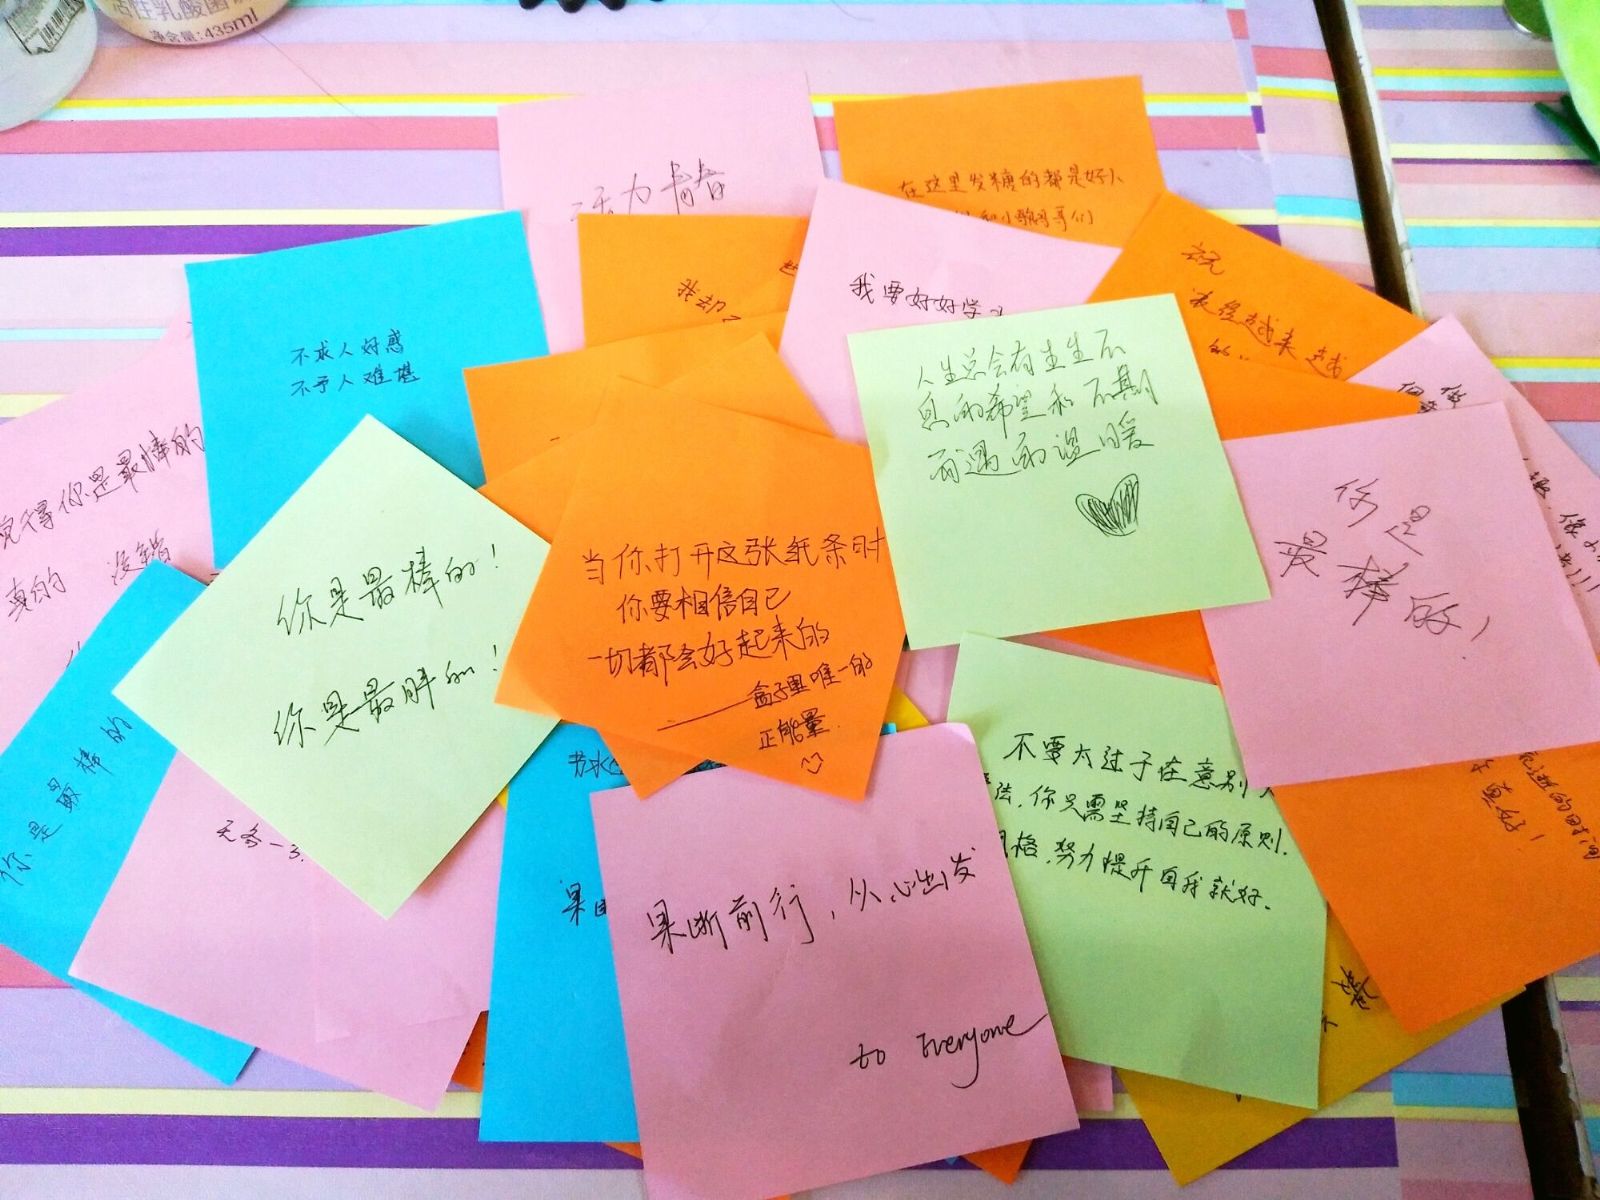 活性乳酸菌
净含量:435ml
活力青春
在这里发糖的都是好人
我却
我要好好学
祝
来越
的..
不求人好感
不予人难堪
人生总会有生生不
息的希望和不期
而遇的温暖
你是
最棒的!
得你是最棒的
真的 没错
你是最棒的!
你是最胖的!
当你打开这张纸条时
你要相信自己
一切都会好起来的
——盒子里唯一的
正能量
你是最棒的
节水
果
果断前行,从心出发
to Everyone
不要太过于在意别
法,你只需坚持自己的原则.
格,努力提升自我就好.
逝的时间
真好!